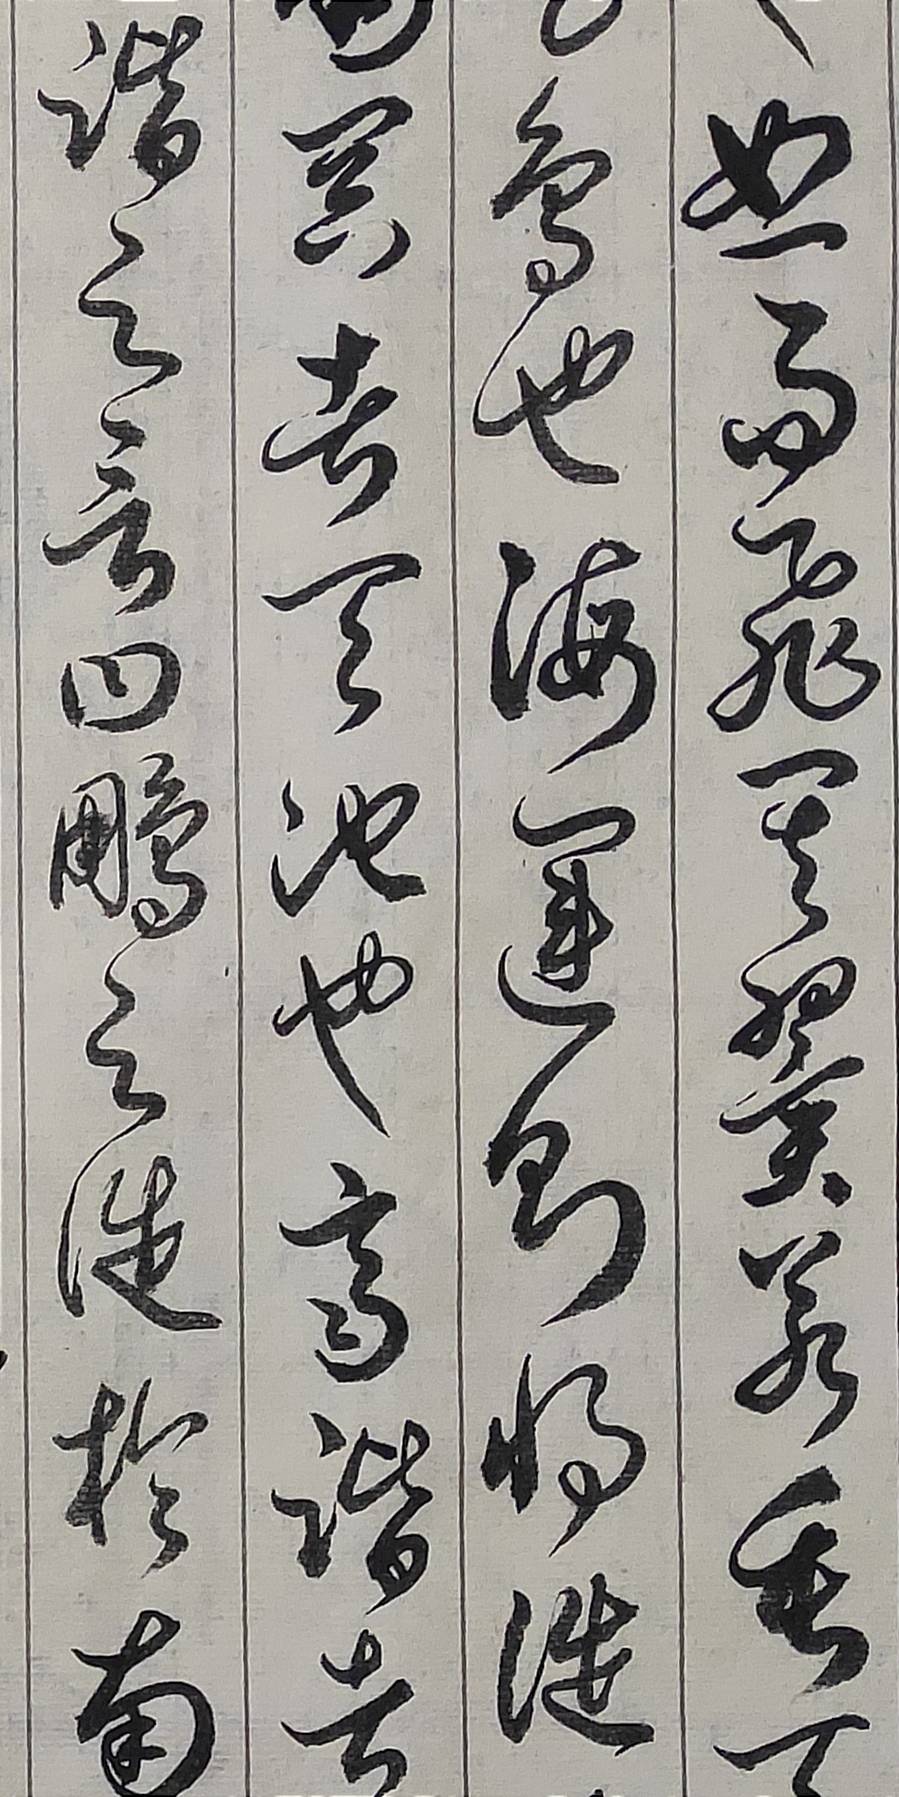 怒而飛其翼若垂天
鳥也海運則將徙
冥者天池也齊諧者
諧之言曰鵬之徙於南